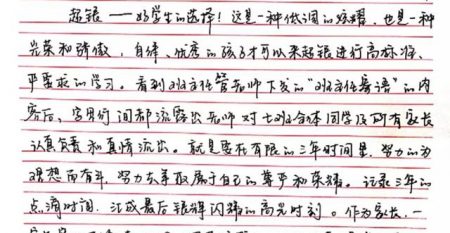 超银——好学生的选择！这是一种低调的炫耀，也是一种
光荣和骄傲，自律、优秀的孩子才可以来超银进行高标准、
严要求的学习。看到班主任管老师下发的“班主任寄语”的内
容后，字里行间都流露出老师对七班全体同学及所有家长
认真负责和真情流出。就是要在有限的三年时间里，努力的为
理想而奋斗，努力去争取属于自己的尊严和荣耀。记录三年的
点滴时间，汇成最后银辉闪耀的高光时刻。作为家长，一